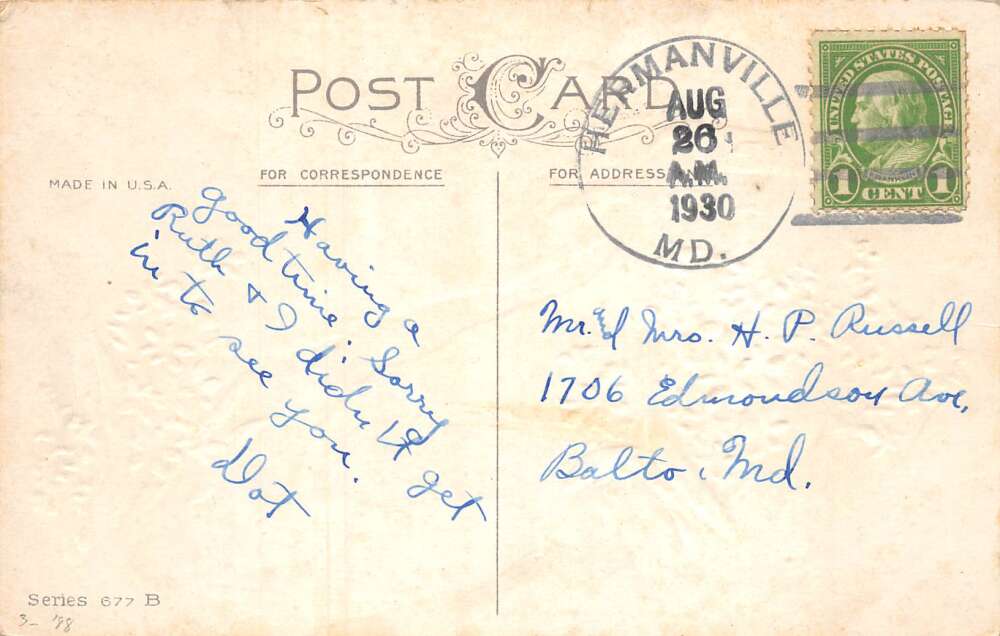 POST CARD
HERMANVILLE
AUG
26
A.M.
1930
MD.
UNITED STATES POSTAGE
1 CENT 1
MADE IN U.S.A.
FOR CORRESPONDENCE
FOR ADDRESS
Having a
good time. Sorry
Ruth & I didn't get
in to see you.
Dot
Mr. and Mrs. H. P. Russell
1706 Edmondson Ave,
Balto, Md.
Series 677 B
3- '88